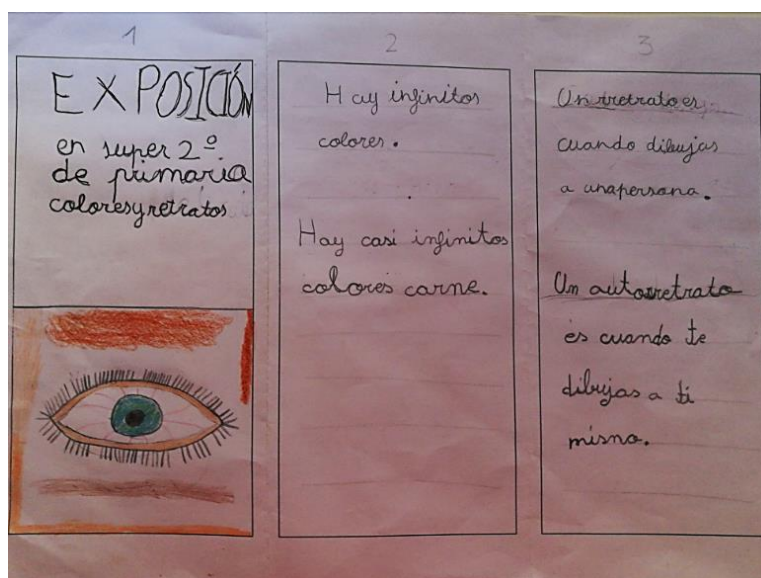 1
EXPOSICIÓN
en super 2º
de primaria
colores y retratos
2
Hay infinitos
colores.
Hay casi infinitos
colores carne.
3
Un retrato es
cuando dibujas
a una persona.
Un autorretrato
es cuando te
dibujas a ti
mismo.